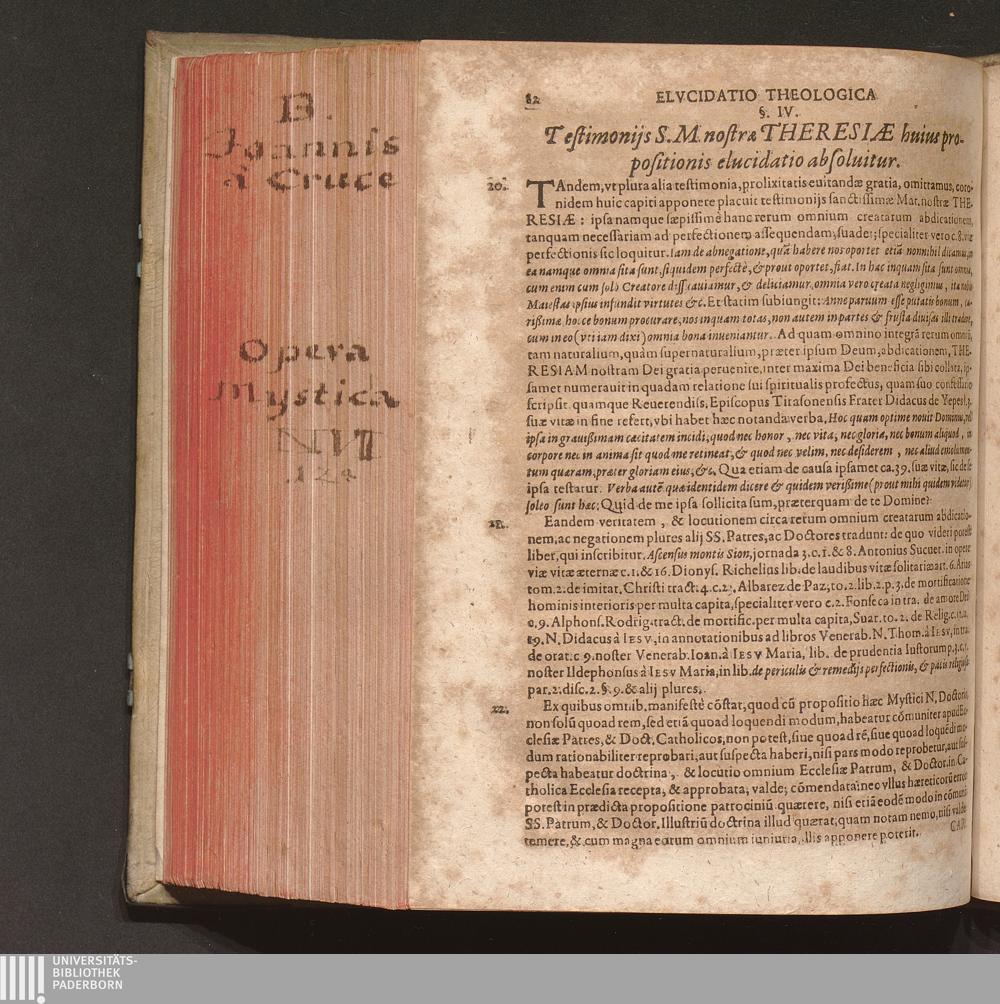 B.
Joannis
à Cruce
Opera
Mystica
NVI
124
82
ELVCIDATIO THEOLOGICA
§. IV.
Testimonijs S. M. nostræ THERESIÆ huius pro-
positionis elucidatio absoluitur.
20.
TAndem, vt plura alia testimonia, prolixitatis euitandæ gratia, omittamus, coro-
nidem huic capiti apponere placuit testimonijs sanctissimæ Mat. nostræ THE-
RESIÆ: ipsa namque sæpissimè hanc rerum omnium creatarum abdicationem,
tanquam necessariam ad perfectionem assequendam, suadet; specialiter vero c. 8. viæ
perfectionis sic loquitur. Iam de abnegatione, quã habere nos oportet etiã nonnihil dicamus, in
ea namque omnia sita sunt, siquidem perfectè, & prout oportet, fiat. In hac inquam sita sunt omnia,
cum enim cum solo Creatore deliciamur, omnia vero creata negligimus, ita nobis
Maiestas ipsius infundit virtutes &c. Et statim subiungit: Anne paruum esse putatis bonum, ca-
rißimæ hocce bonum procurare, nos inquam totas, non autem in partes & frusta diuisas illi tradere,
cum in eo (vti iam dixi) omnia bona inueniantur. Ad quam omnino integrã rerum omniũ,
tam naturalium, quàm supernaturalium, præter ipsum Deum, abdicationem, THE-
RESIAM nostram Dei gratia peruenire, inter maxima Dei beneficia sibi collata, ip-
samet numerauit in quadam relatione sui spiritualis profectus, quam suo confessario
scripsit, quamque Reuerendiss, Episcopus Tirasonensis Frater Didacus de Yepes l. 3.
suæ vitæ in fine refert, vbi habet hæc notanda verba. Hoc quam optime nouit Dominus, vel
ipsa in grauißimam cæcitatem incidi, quod nec honor, nec vita, nec gloria, nec bonum aliquod, in
corpore nec in anima sit quod me retineat, & quod nec velim, nec desiderem, nec aliud emolumen-
tum quæram, præter gloriam eius, &c. Qua etiam de causa ipsamet ca. 39. suæ vitæ, sic de se
ipsa testatur. Verba autẽ quæ identidem dicere & quidem verißime (prout mihi quidem videtur)
soleo sunt hæc; Quid de me ipsa sollicita sum, præterquam de te Domine?
21.
Eandem veritatem, & locutionem circa rerum omnium creatarum abdicatio-
nem, ac negationem plures alij SS. Patres, ac Doctores tradunt: de quo videri potest
liber, qui inscribitur, Ascensus montis Sion, jornada 3. c. 1. & 8. Antonius Sucuet. in opere
viæ vitæ æternæ c. 1. & 16. Dionys. Richelius lib. de laudibus vitæ solitariæ art. 6. Arias
tom. 2. de imitat. Christi tract. 4. c. 23. Albarez de Paz, to. 2. lib. 2. p. 3. de mortificatione
hominis interioris per multa capita, specialiter vero c. 2. Fonseca in tra. de amore Dei
c. 9. Alphons. Rodrig. tract. de mortific. per multa capita, Suar. to. 2. de Relig.
N. Didacus à IESV, in annotationibus ad libros Venerab. N. Thom. à IESV, in tra.
de orat. c 9. noster Venerab. Ioan. à IESV Maria, lib. de prudentia Iustorum p. 3. c.
noster Ildephonsus à IESV Maria, in lib. de periculis & remedijs perfectionis, & pacis religiosæ
par. 2. disc. 2. §. 9. & alij plures.
22.
Ex quibus omnib. manifestè cõstat, quod cũ propositio hæc Mystici N. Doctoris,
non solũ quoad rem, sed etiã quoad loquendi modum, habeatur cõmuniter apud Ec-
clesiæ Patres, & Doct. Catholicos, non potest, siue quoad rẽ, siue quoad loquẽdi mo-
dum rationabiliter reprobari, aut suspecta haberi, nisi pars modo reprobetur, aut sus-
pecta habeatur doctrina, & locutio omnium Ecclesiæ Patrum, & Doctor. in Ca-
tholica Ecclesia recepta, & approbata, valde; cõmendata: nec vllus hæreticorũ error
potest in prædicta propositione patrociniũ quærere, nisi etiã eodẽ modo in cõmuni
SS. Patrum, & Doctor. Illustriũ doctrina illud quærat, quam notam nemo, nisi valde
temere, & cum magna eorum omnium iniuria, illis apponere poterit.
CAP.
UNIVERSITÄTS-
BIBLIOTHEK
PADERBORN